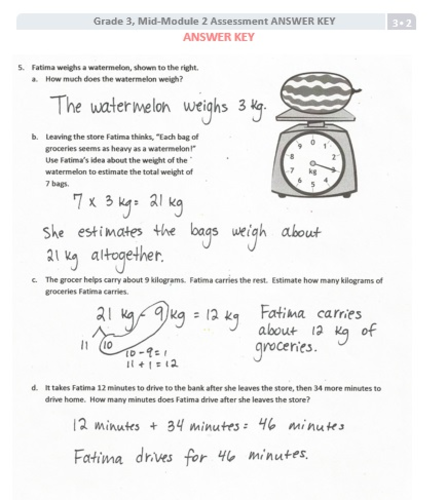 Grade 3, Mid-Module 2 Assessment ANSWER KEY
3•2
ANSWER KEY
5. Fatima weighs a watermelon, shown to the right.
a. How much does the watermelon weigh?
The watermelon weighs 3 kg.
b. Leaving the store Fatima thinks, "Each bag of
groceries seems as heavy as a watermelon!"
Use Fatima's idea about the weight of the
watermelon to estimate the total weight of
7 bags.
0
1
2
3
4
5
6
7
8
9
kg
7 x 3 kg = 21 kg
She estimates the bags weigh about
21 kg altogether.
c. The grocer helps carry about 9 kilograms. Fatima carries the rest. Estimate how many kilograms of
groceries Fatima carries.
21 kg - 9 kg = 12 kg
11 10
10 - 9 = 1
11 + 1 = 12
Fatima carries
about 12 kg of
groceries.
d. It takes Fatima 12 minutes to drive to the bank after she leaves the store, then 34 more minutes to
drive home. How many minutes does Fatima drive after she leaves the store?
12 minutes + 34 minutes = 46 minutes
Fatima drives for 46 minutes.